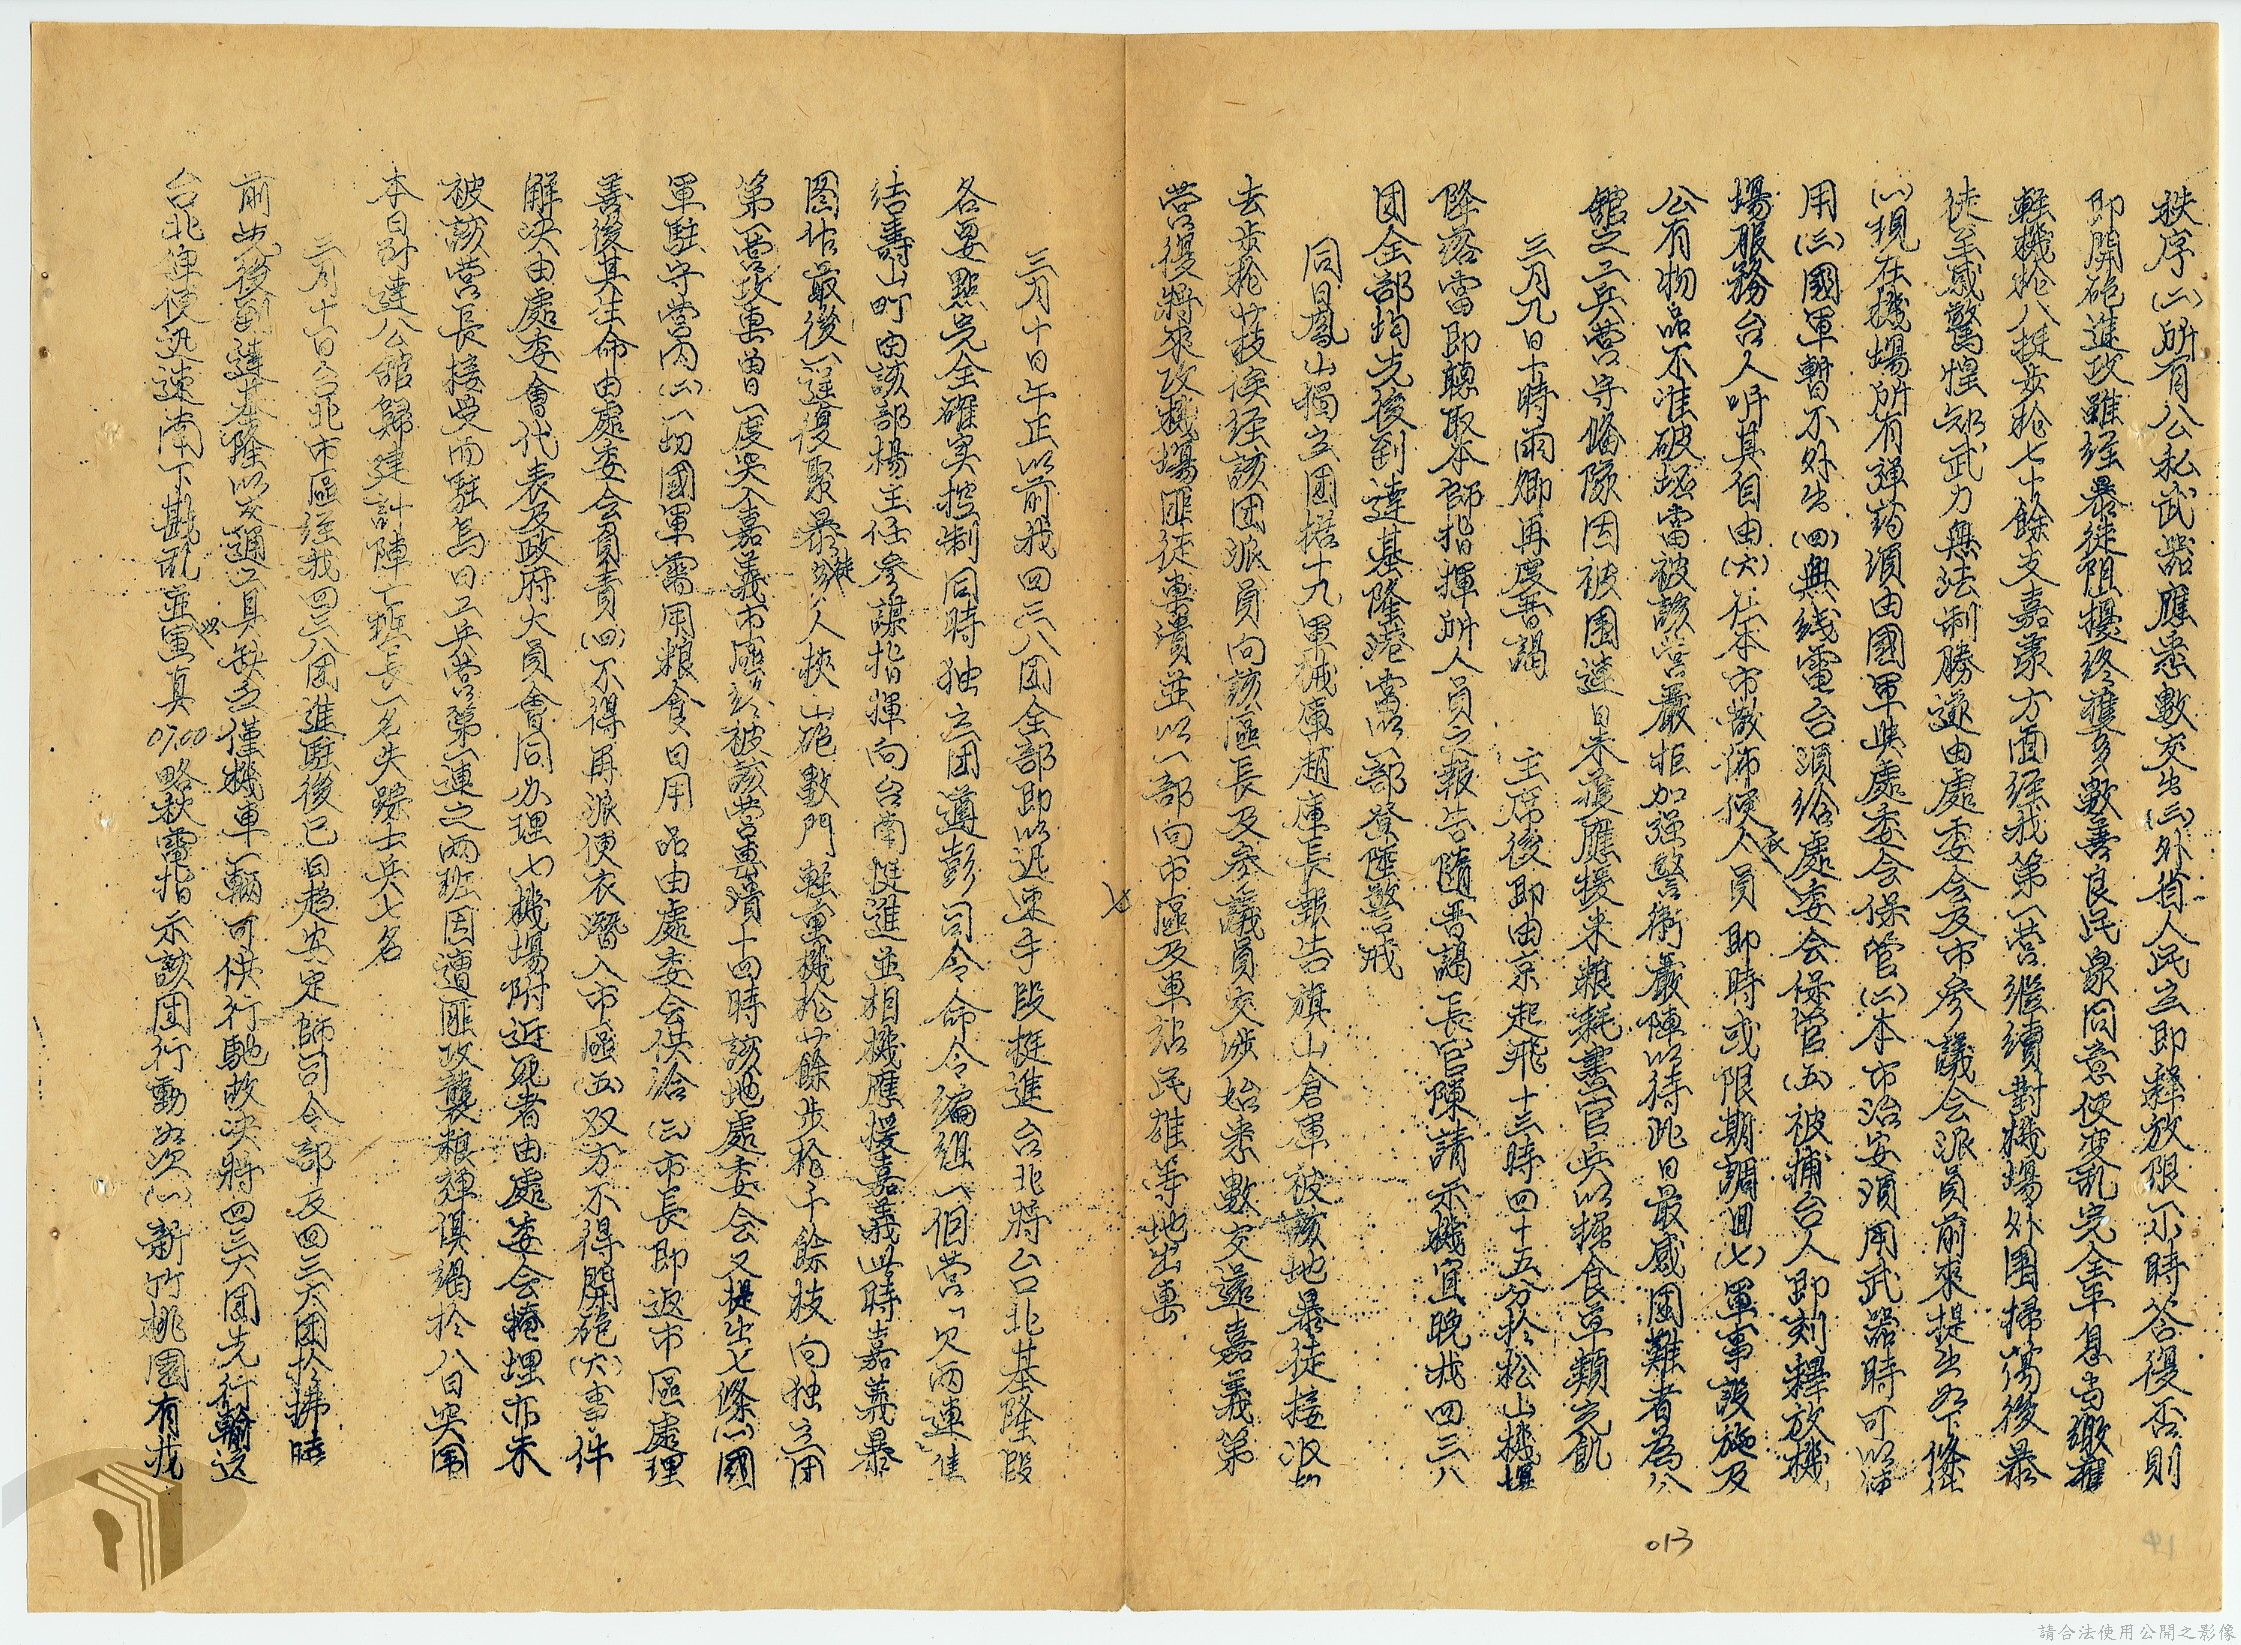 秩序(二)所有公私武器應悉數交出(三)外省人民立即釋放限一小時答復否則
即開砲進攻雖經暴徒阻擾終獲多數善良民眾同意使变乱完全平息尚繳獲
輕機枪八挺步枪七十餘支嘉義方面經我第一营繼續對機場外围掃蕩後暴
徒至感驚惶知武力無法制勝遂由處委会及市參議会派員前來提出如下條件
(一)現在機場所有彈药須由國軍與處委会保管(二)本市治安須用武器時可以使
用(三)國軍暫不外出(四)無线電台須給處委会保管(五)被捕台人即刻釋放機
場服務台人听其自由(六)在本市散佈便衣人員即時或限期調回(七)軍事設施及
公有物品不准破壞當被該营嚴拒加强警衛嚴陣以待此日最感困難者為公
館之工兵营守備隊因被围連日未獲應援米粮耗盡官兵以掘食草類充飢
三月九日十時雨卿再度晋謁 主席後即由京起飛十三時四十五分於松山機場
降落當即聽取本師指揮所人員之報告隨晋謁長官陳請示機宜晚我四三八
团全部均先後到達基隆港當以一部登陸警戒
同日鳳山獨立团据十九軍械庫趙庫長報告旗山倉庫被該地暴徒接收
去步枪廿枝後経該团派員向該區長及參議員交涉始悉數交還嘉義第一
营復將來攻機場匪徒擊潰並以一部向市區及車站民雄等地出擊
三月十日午正以前我四三八团全部即以迅速手段挺進台北將台北基隆段
各要點完全確实控制同時独立团遵彭司令命令編組一個营(欠兩連)進
结壽山町由該部楊主任參謀指揮向台南挺進並相機應援嘉義此時嘉義暴
图作最後一逞復聚暴徒數人挾山砲數門輕重機枪廿餘步枪千餘枝向独立团
第一营攻擊曾一度突入嘉義市區終被該营擊潰十四時該地處委会又提出七條(一)國
軍駐守营内(二)一切國軍需用粮食日用品由處委会供給(三)市長即返市區處理
善後其生命由處委会負責(四)不得再派便衣潛入市區(五)双方不得開砲(六)事件
解決由處委會代表及政府大員會同办理(七)機場附近死者由處委会掩埋亦未
被該营長接受而駐烏日工兵营第一連之兩班因遭匪攻襲粮彈俱竭於八日突围
本日附達公館歸建計陣亡班長一名失踪士兵七名
三月十一日台北市區経我四三八团進駐後已日趋安定師司令部及四三六团於拂曉
前先後到達基隆以交通工具缺乏僅機車一輛可供行馳故决將四三六团先行輸送
台北俾便迅速南下戡乱並以寅真0700略秋電指示該团行動如次(一)新竹桃園有我
013
41
請合法使用公開之影像